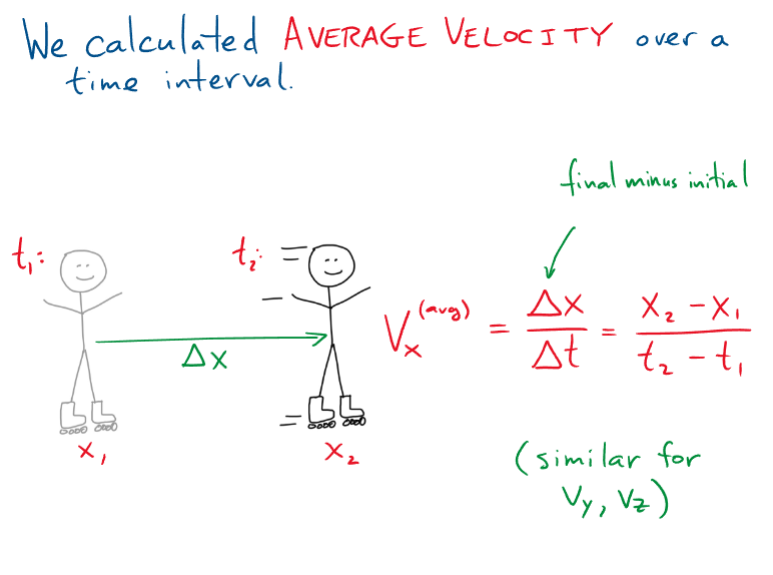 We calculated AVERAGE VELOCITY over a
time interval.
final minus initial
t₁:
t₂:
Vₓ⁽ᵃᵛᵍ⁾ = Δx/Δt = (x₂ - x₁)/(t₂ - t₁)
Δx
x₁
x₂
(similar for
Vy, Vz)